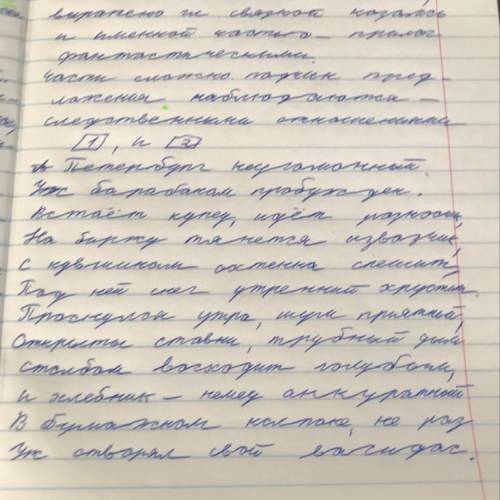 выражено гл связкой казалась
и именной частью – прилаг
фантастическими.
Части сложно подчин пред-
ложения наблюдаются –
следственными отношениями
[1], и [2]
А Петербург неугомонный
Уж барабаном пробужден.
Встаёт купец, идёт разносчик,
На биржу тянется извозчик,
С кувшином охтенка спешит,
Под ней снег утренний хрустит.
Проснулся утра, шум приятный,
Открыты ставни, трубный дым
столбом восходит голубым,
и хлебник – немец аккуратный
В бумажном колпаке, не раз
Уж отворял свой васисдас.